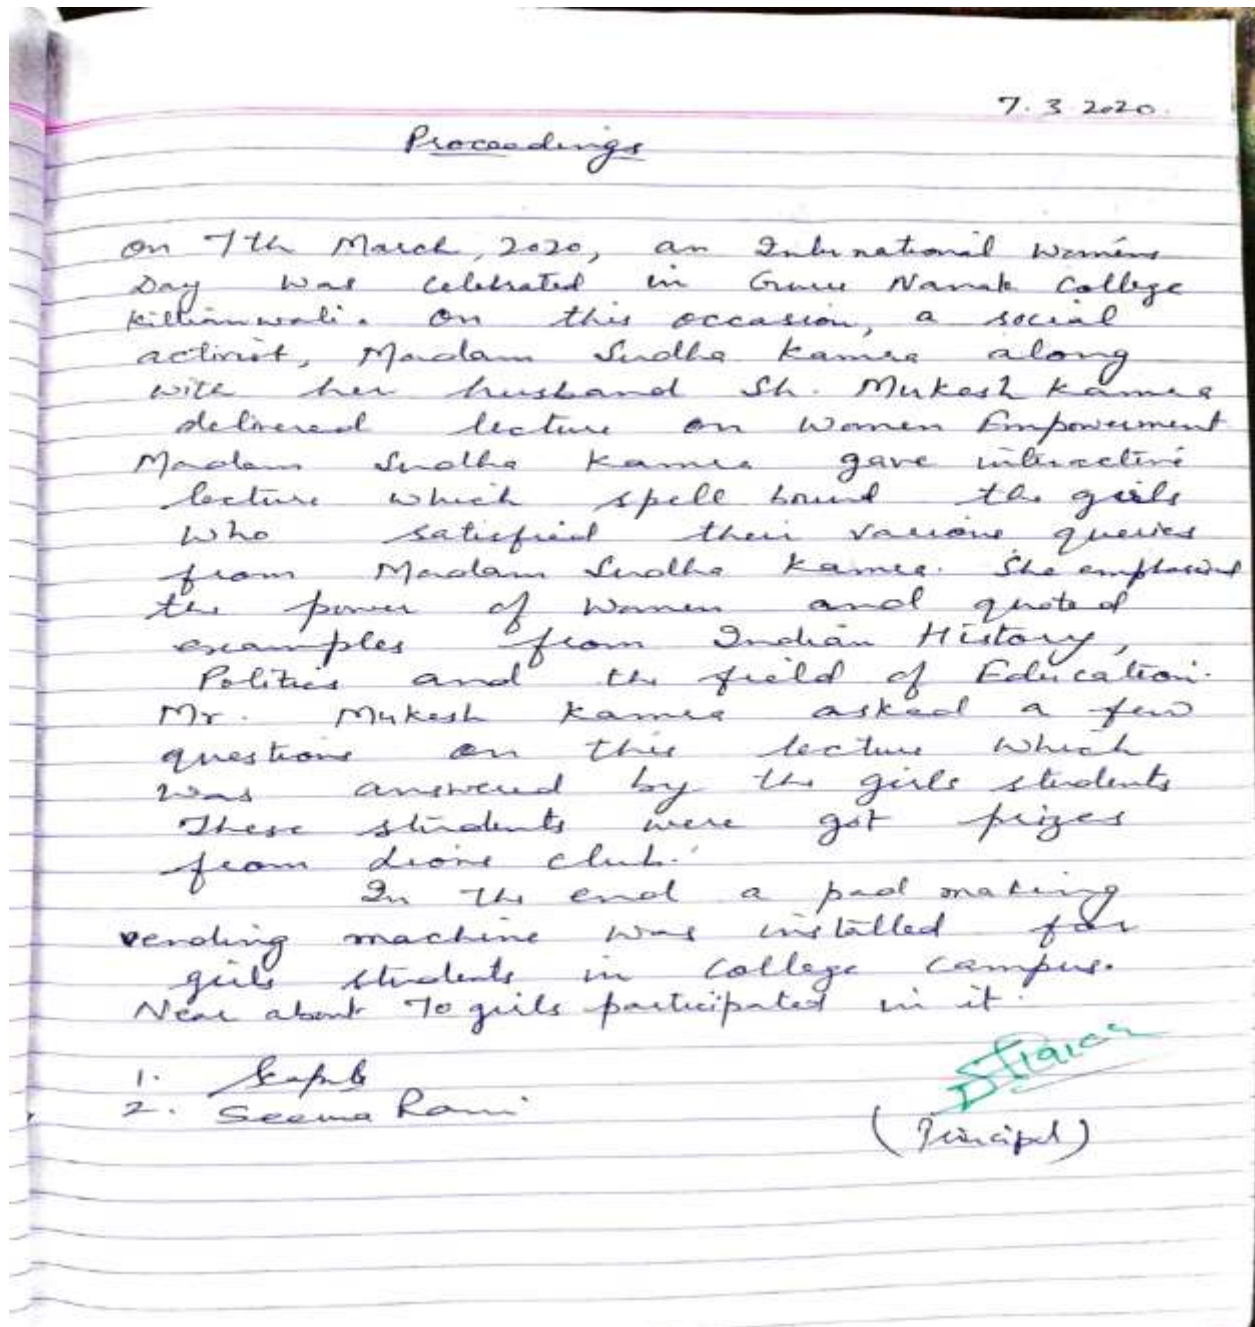 7.3.2020.
Proceedings
On 7th March, 2020, an International Womens
Day was celebrated in Guru Nanak College
Killianwali. On this occasion, a social
activist, Madam Sudha Kamra along
with her husband Sh. Mukesh Kamra
delivered lecture on Women Empowerment
Madam Sudha Kamra gave interactive
lecture which spell bound the girls
who satisfied their various queries
from Madam Sudha Kamra. She emphasised
the power of women and quoted
examples from Indian History,
Politics and the field of Education.
Mr. Mukesh Kamra asked a few
questions on this lecture which
was answered by the girls students
These students were got prizes
from Lions club.
In the end a pad making
vending machine was installed for
girls students in college campus.
Near about 70 girls participated in it.
1.
2. Seema Rani
(Principal)